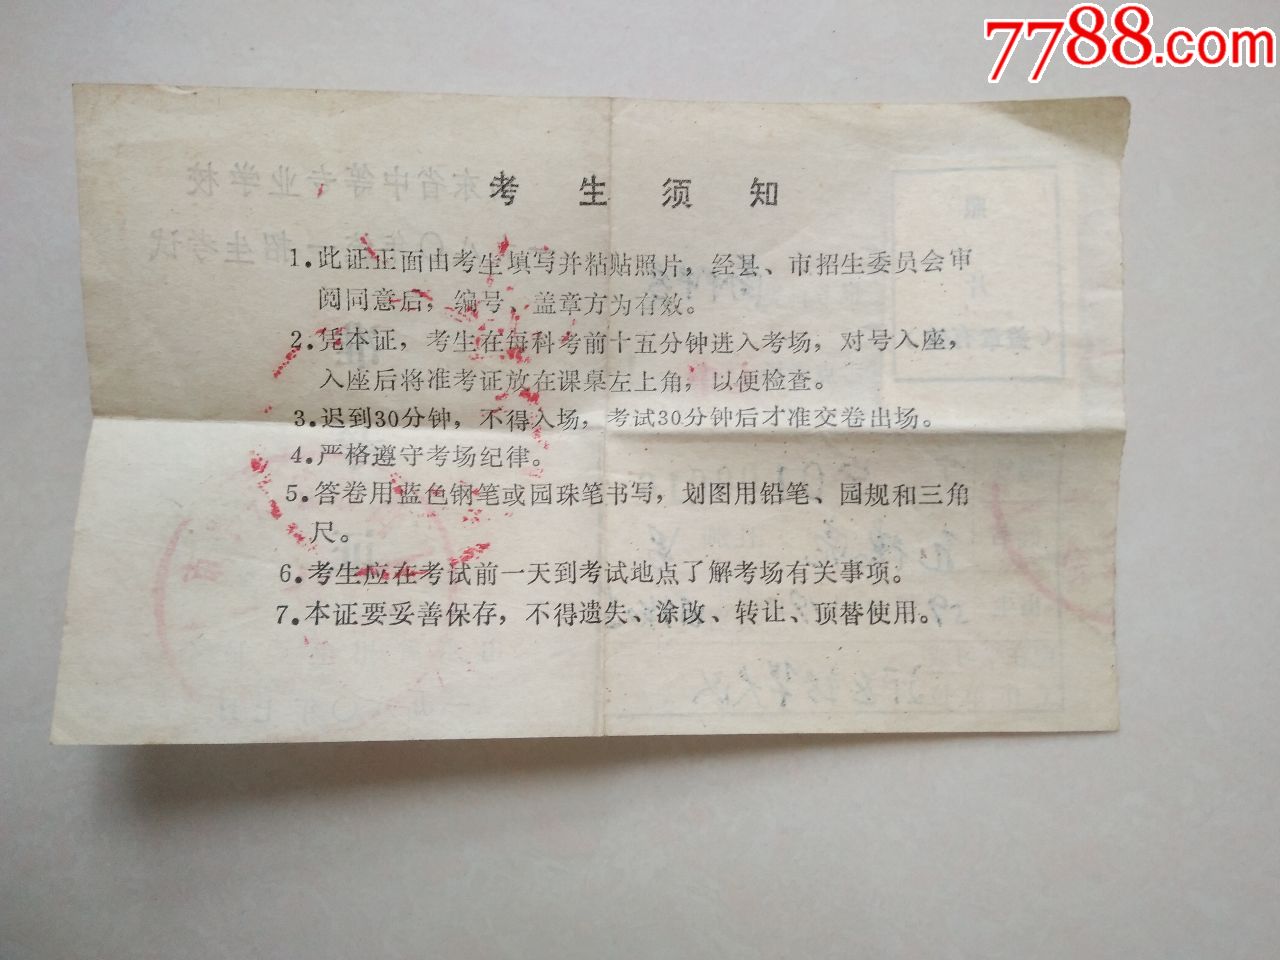 7788.com
考生须知
1.此证正面由考生填写并粘贴照片，经县、市招生委员会审
阅同意后，编号、盖章方为有效。
2.凭本证，考生在每科考前十五分钟进入考场，对号入座，
入座后将准考证放在课桌左上角，以便检查。
3.迟到30分钟，不得入场，考试30分钟后才准交卷出场。
4.严格遵守考场纪律。
5.答卷用蓝色钢笔或园珠笔书写，划图用铅笔、园规和三角
尺。
6.考生应在考试前一天到考试地点了解考场有关事项。
7.本证要妥善保存，不得遗失、涂改、转让、顶替使用。